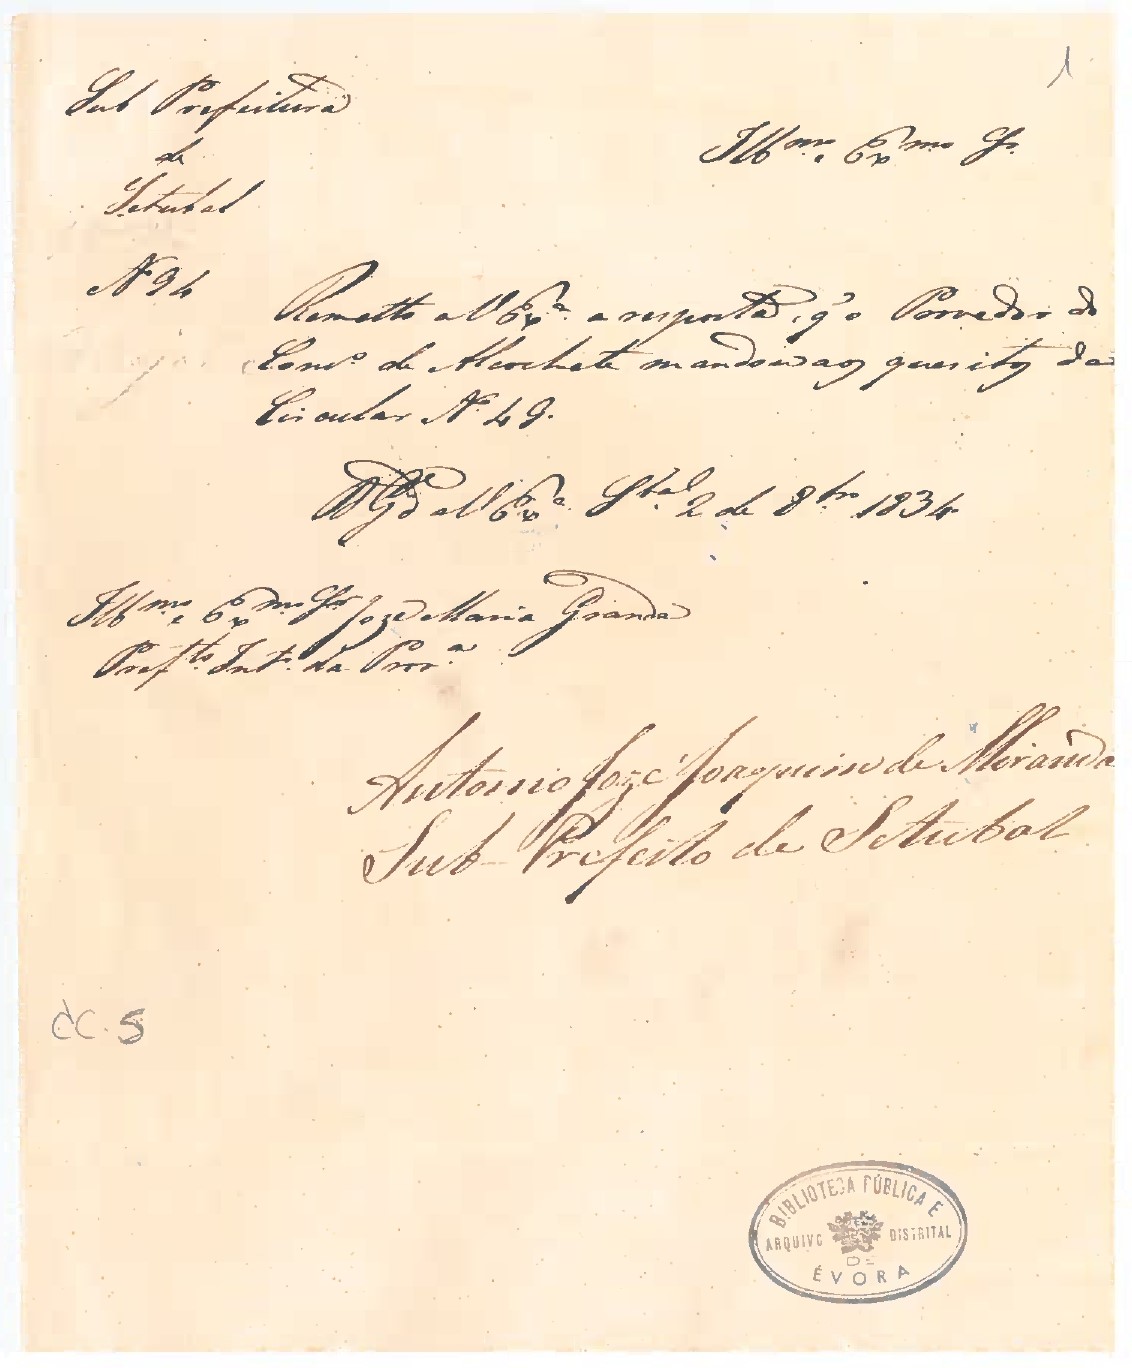 1
Sub Prefeitura
de
Setubal
Illmo. e Exmo Sr.
Nº 94
Remetto a V Exª. a resposta, q' o Provedor do
Concº. de Alcochete mandou aos quesitos da
Circular Nº. 49.
Ds Gde a V Exª. Stbal. 2 de 8bro. 1834
Illmo. e Exmo Sr Joze Maria Grande
Prefto. Intº. da Provª
Antonio Joze Joaquim de Miranda
Sub-Prefeito de Setubal
CC. 5
BIBLIOTECA PÚBLICA E
ARQUIVO DISTRITAL
DE
ÉVORA